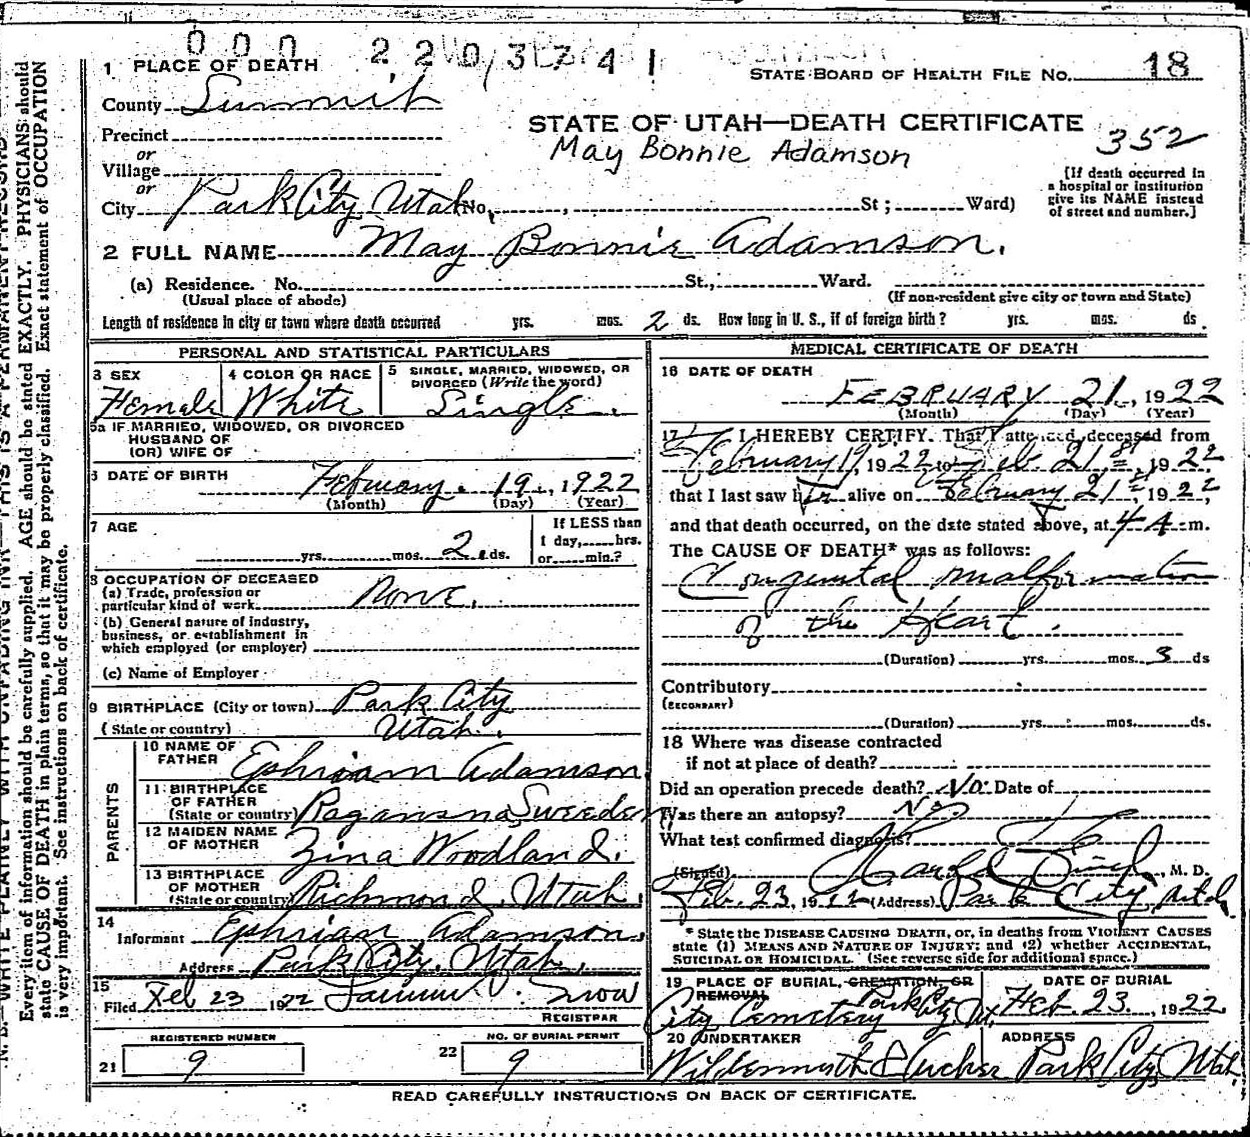 000 220 3741
1 PLACE OF DEATH
STATE BOARD OF HEALTH FILE NO. 18
County Summit
STATE OF UTAH—DEATH CERTIFICATE
Precinct
May Bonnie Adamson
352
or
Village
or
[If death occurred in
a hospital or institution
give its NAME instead
of street and number.]
City Park City Utah (No. , St ; Ward)
2 FULL NAME May Bonnie Adamson.
(a) Residence. No. St., Ward.
(Usual place of abode)
(If non-resident give city or town and State)
Length of residence in city or town where death occurred yrs. mos. 2 ds. How long in U. S., if of foreign birth? yrs. mos. ds.
PERSONAL AND STATISTICAL PARTICULARS
3 SEX
Female
4 COLOR OR RACE
White
5 SINGLE, MARRIED, WIDOWED, OR
DIVORCED (Write the word)
Single.
5a IF MARRIED, WIDOWED, OR DIVORCED
HUSBAND OF
(OR) WIFE OF
6 DATE OF BIRTH February. 19., 1922
(Month) (Day) (Year)
7 AGE
yrs. mos. 2 ds.
If LESS than
1 day, hrs.
or min.?
8 OCCUPATION OF DECEASED
(a) Trade, profession or
particular kind of work None.
(b) General nature of industry,
business, or establishment in
which employed (or employer)
(c) Name of Employer
9 BIRTHPLACE (City or town) Park City
(State or country) Utah.
PARENTS
10 NAME OF
FATHER Ephriam Adamson.
11 BIRTHPLACE
OF FATHER
(State or country) Sweeden
12 MAIDEN NAME
OF MOTHER Zina Woodland.
13 BIRTHPLACE
OF MOTHER
(State or country) Richmond, Utah.
14
Informant Ephrian Adamson.
Address Park City, Utah.
15
Filed Feb 23 1922 Snow
REGISTRAR
REGISTERED NUMBER
21 9
NO. OF BURIAL PERMIT
22 9
MEDICAL CERTIFICATE OF DEATH
16 DATE OF DEATH
FEBRUARY 21, 1922
(Month) (Day) (Year)
17 I HEREBY CERTIFY. That I attended deceased from
February 19, 1922 to Feb 21st, 1922
that I last saw her alive on February 21st, 1922
and that death occurred, on the date stated above, at 4 A. m.
The CAUSE OF DEATH* was as follows:
Congenital malformation
of the Heart.
(Duration) yrs. mos. 3 ds
Contributory
(SECONDARY)
(Duration) yrs. mos. ds.
18 Where was disease contracted
if not at place of death?
Did an operation precede death? No. Date of
Was there an autopsy? No
What test confirmed diagnosis?
(Signed) , M. D.
Feb. 23, 1922 (Address) Park City, Utah
* State the DISEASE CAUSING DEATH, or, in deaths from VIOLENT CAUSES
state (1) MEANS AND NATURE OF INJURY; and (2) whether ACCIDENTAL,
SUICIDAL OR HOMICIDAL. (See reverse side for additional space.)
19 PLACE OF BURIAL, CREMATION, OR
REMOVAL
City Cemetery Park City, Ut.
DATE OF BURIAL
Feb. 23., 1922.
20 UNDERTAKER
Wildermuth & Archer
ADDRESS
Park City, Utah
READ CAREFULLY INSTRUCTIONS ON BACK OF CERTIFICATE.
N. B.—WRITE PLAINLY WITH UNFADING INK—THIS IS A PERMANENT RECORD
Every item of information should be carefully supplied. AGE should be stated EXACTLY. PHYSICIANS should
state CAUSE OF DEATH in plain terms, so that it may be properly classified. Exact statement of OCCUPATION
is very important. See instructions on back of certificate.